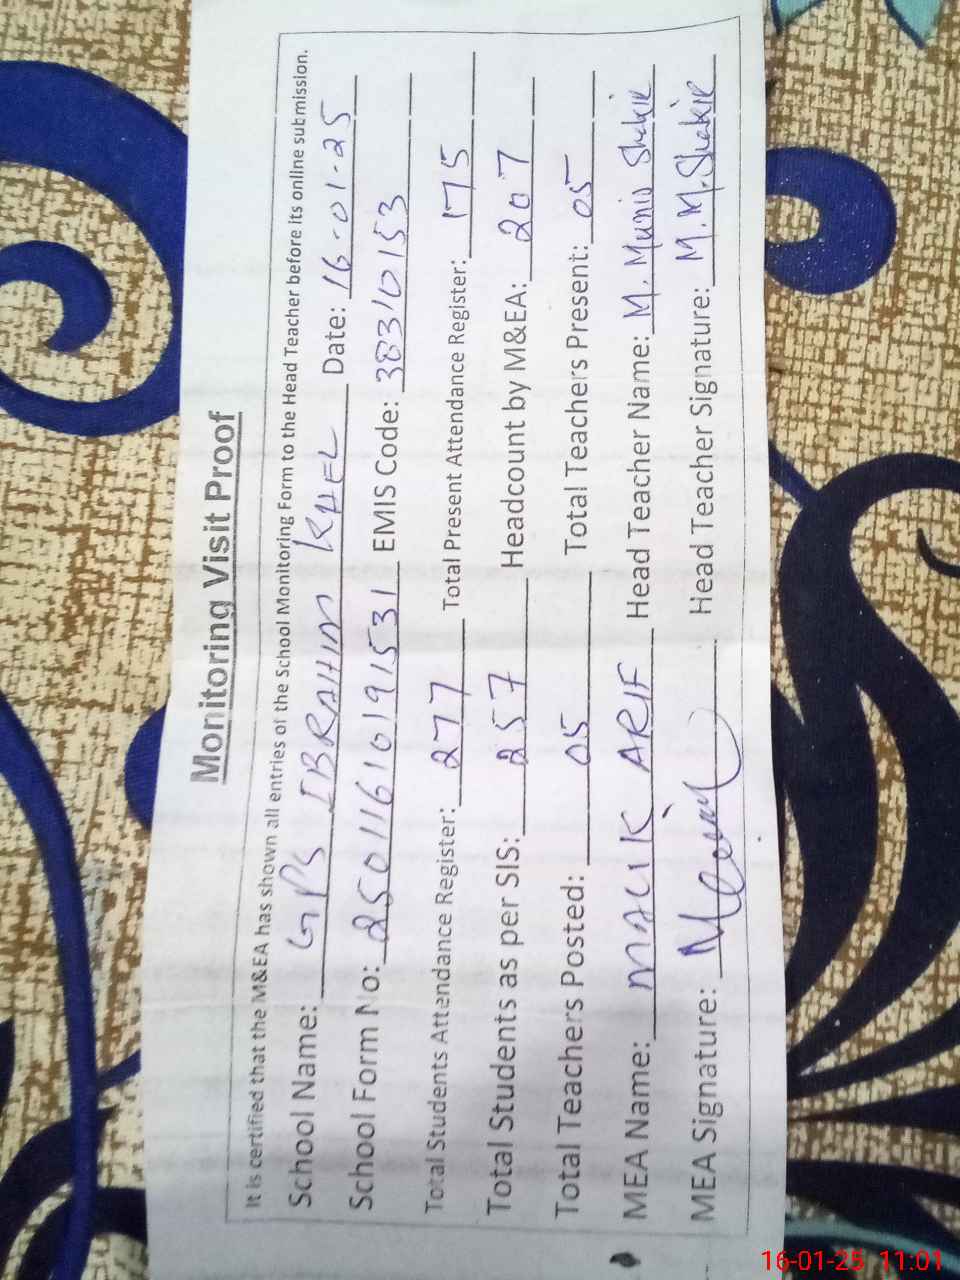 Monitoring Visit Proof
It is certified that the M&EA has shown all entries of the School Monitoring Form to the Head Teacher before its online submission.
School Name: GPS IBRAHIM KHEL Date: 16-01-25
School Form No: 25011610191531 EMIS Code: 38310153
Total Students Attendance Register: 277 Total Present Attendance Register: 175
Total Students as per SIS: 257 Headcount by M&EA: 207
Total Teachers Posted: 05 Total Teachers Present: 05
MEA Name: MALIK ARIF Head Teacher Name: M. Munib Shakir
MEA Signature: Head Teacher Signature: M.M.Shakir
16-01-25 11:01